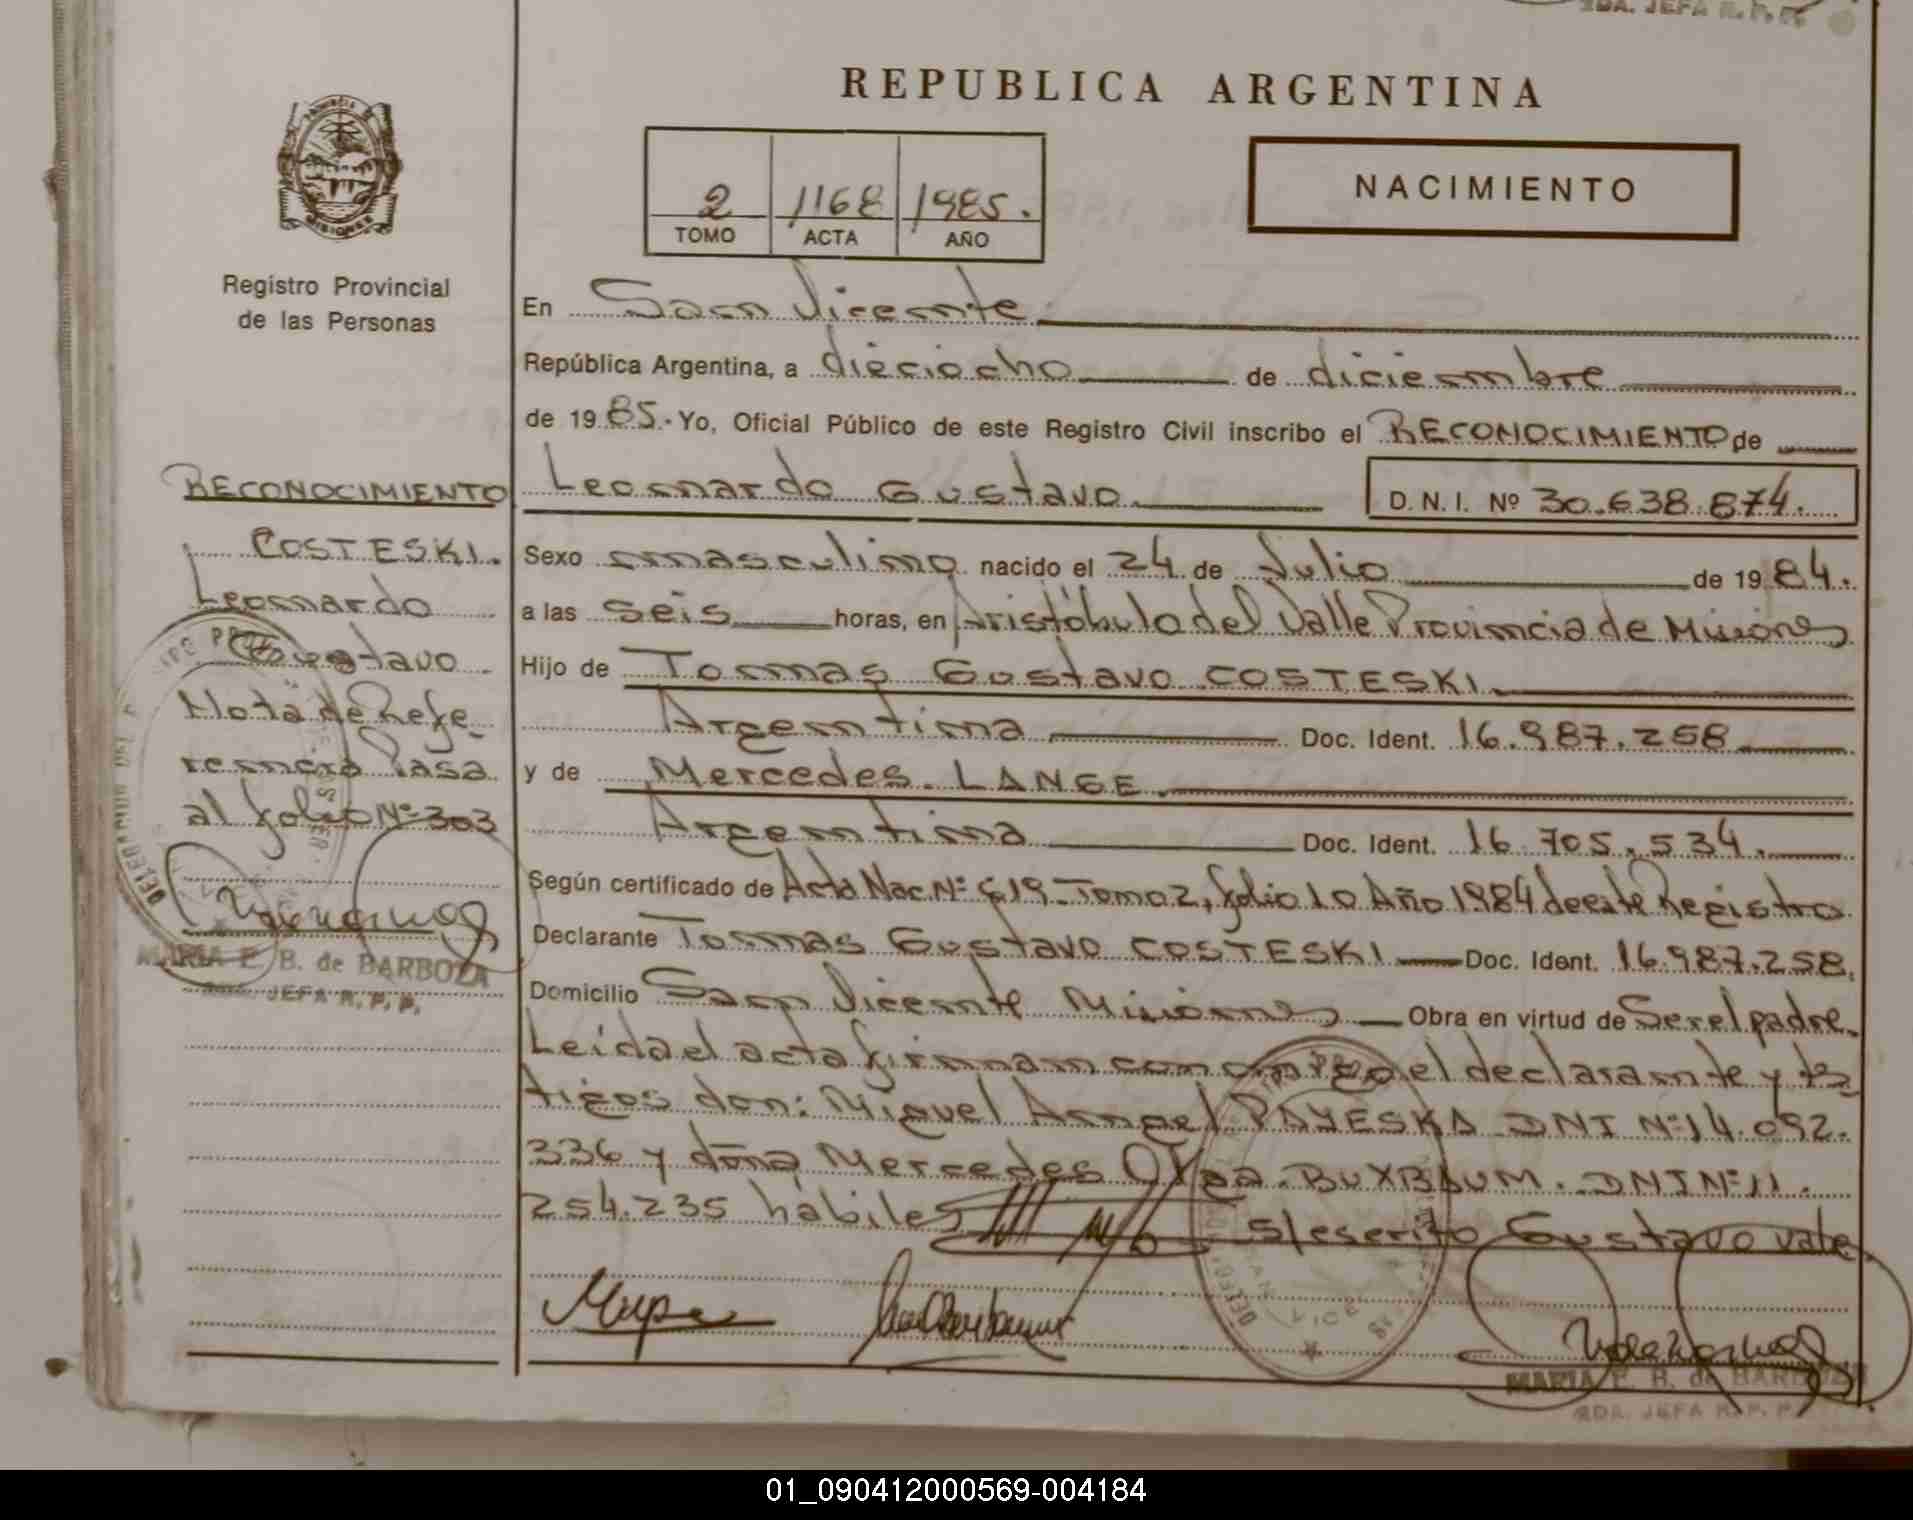 2DA. JEFA R. P. P.
REPUBLICA ARGENTINA
PROVINCIA DE
MISIONES
2 1168 1985.
TOMO ACTA AÑO
NACIMIENTO
Registro Provincial
de las Personas
En San Vicente
República Argentina, a dieciocho de diciembre
de 1985. Yo, Oficial Público de este Registro Civil inscribo el RECONOCIMIENTO de
Leonardo Gustavo D. N. I. Nº 30.638.874.
Sexo masculino nacido el 24 de Julio de 1984.
a las seis horas, en Aristóbulo del Valle Provincia de Misiones
Hijo de Tomas Gustavo COSTESKI
Argentina Doc. Ident. 16.987.258
y de Mercedes LANGE
Argentina Doc. Ident. 16.705.534.
Según certificado de Acta Nac. Nº 619 Tomo 2, folio 10 Año 1984 de este Registro
Declarante Tomas Gustavo COSTESKI Doc. Ident. 16.987.258.
Domicilio San Vicente Misiones Obra en virtud de Ser el padre.
Leida el acta firman conmigo el declarante y tes
tigos don: Miguel Angel PAYESKA DNI Nº 14.092.
336 y doña Mercedes Olga BUXBAUM. DNI Nº 11.
254.235 hábiles S/escrito Gustavo vale
MARIA E. B. de BARBOZA
2DA. JEFA R. P. P.
RECONOCIMIENTO
COSTESKI.
Leonardo
Gustavo
Nota de Refe
rencia Pasa
al folio Nº 303
MARIA E. B. de BARBOZA
JEFA R. P. P.
01_090412000569-004184